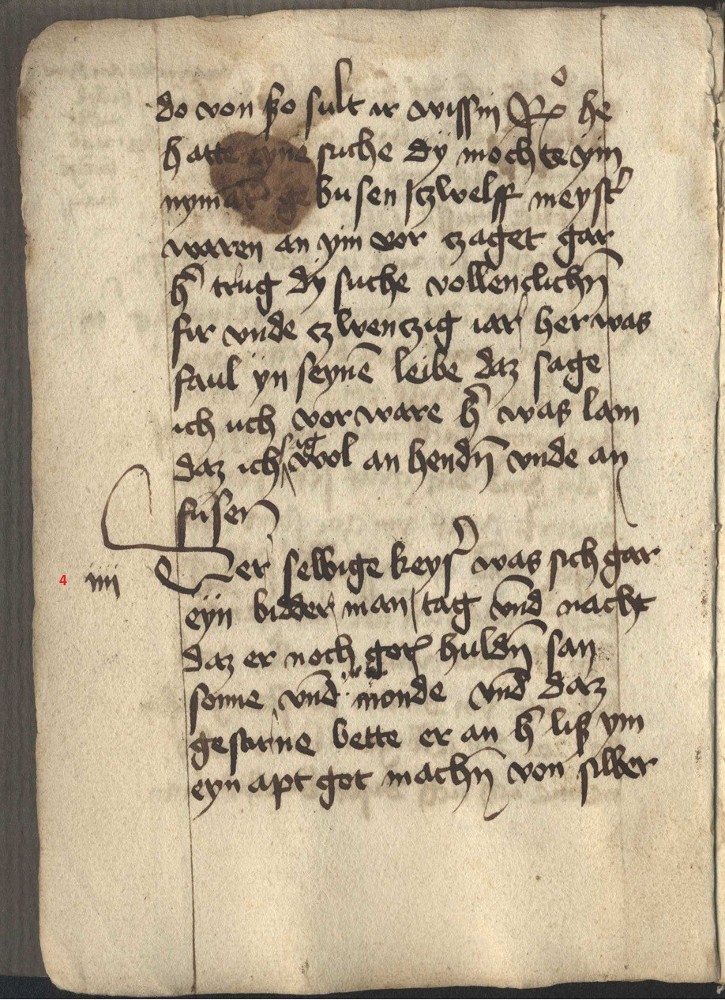 do von ßo sult ir wissin Ro he
hatte eyne suche dy mochte ym
nymāt gebusen czwelff meyst͛
waren an ym vor czaget gar
h͛ trug dy suche vollenclichn̄
fir vnde czwenczig iar her was
faul yn seynē leibe daz sage
ich uch vorware h͛ was lam
daz ich sag wol an hendn̄ vnde an
fusen
4 iiii Der selbige keys͛ was sich gar
eyn bidder man tag vnd nacht
daz er noch huldn̄ san
sonne vnd monde vnd daz
gestirne bette er an h͛ liß ym
eyn apt got machn̄ von silber